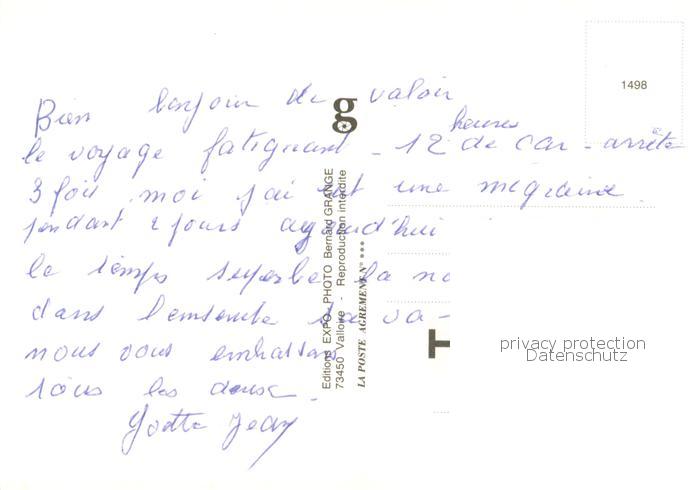 1498
Bien bonjour de valoir
heures
le voyage fatiguant - 12 de car - arrête
3 fois moi j'ai une migraine
pendant 2 jours aujourd'hui
le temps superbe la
dans l'ensemble sa va -
nous vous embrassons
tous les deux.
Yvette Jean
Editions EXPO - PHOTO Bernard GRANGE
73450 Valloire - Reproduction interdite
LA POSTE AGREMENT N° •••
privacy protection
Datenschutz